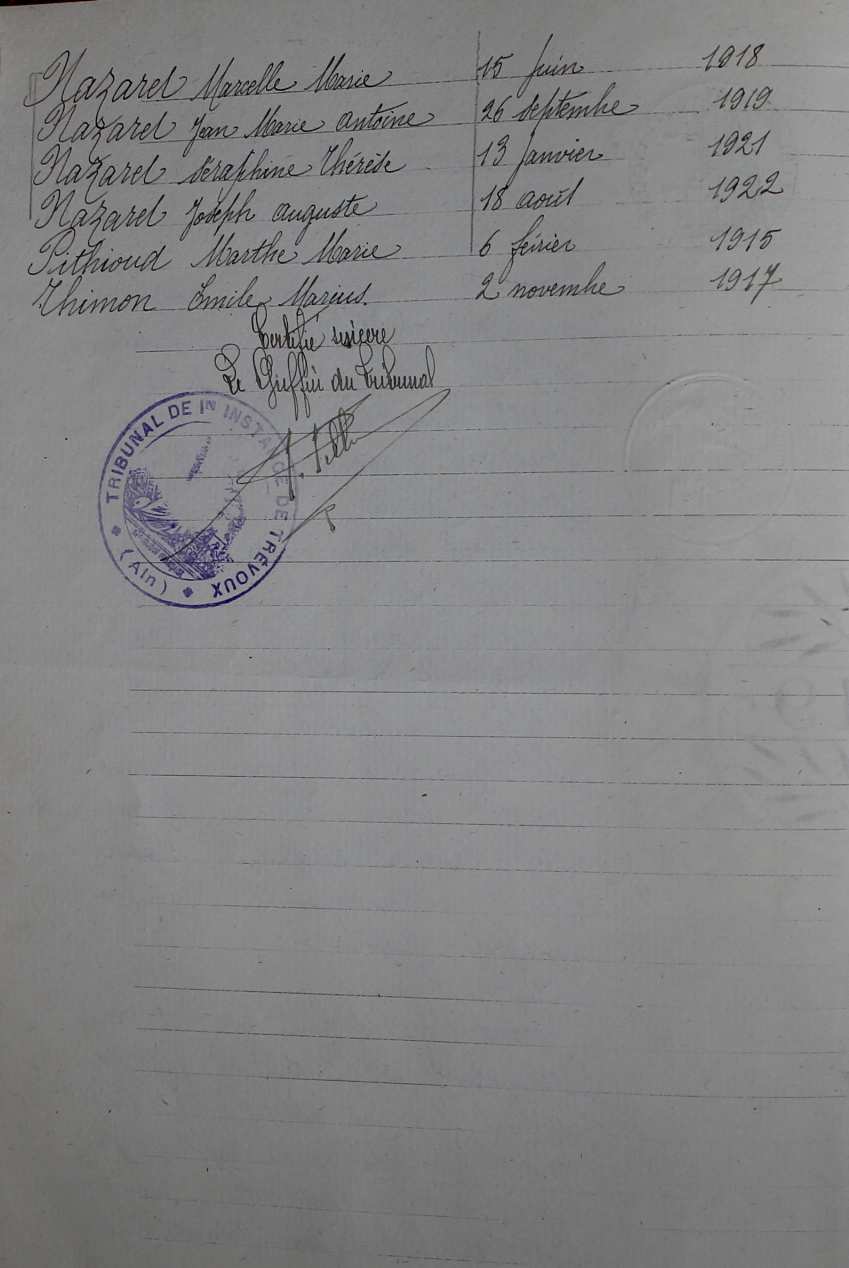 Nazaret Marcelle Marie 15 Juin 1918
Nazaret Jean Marie Antoine 26 Septembre 1919
Nazaret Séraphine Thérèse 13 Janvier 1921
Nazaret Joseph Auguste 18 août 1922
Pithioud Marthe Marie 6 férier 1915
Thimon Emile Marius. 2 novembre 1917
Certifié sincère
Le Greffier du Tribunal
TRIBUNAL DE 1re INSTANCE DE TRÉVOUX
(Ain)